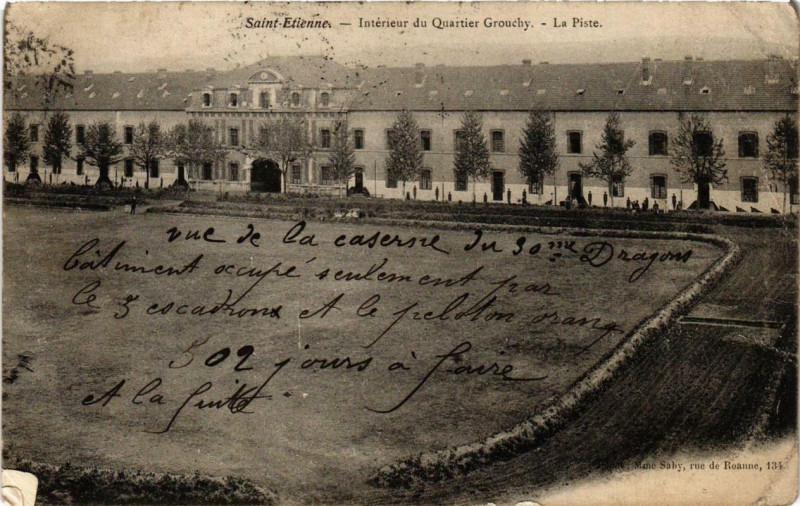 Saint-Etienne. — Intérieur du Quartier Grouchy. - La Piste.
vue de la caserne du 30me Dragons
bâtiment occupé seulement par
le 5 escadrons et le peloton orang
302 jours à faire
et la fuite
Mme Saby, rue de Roanne, 134